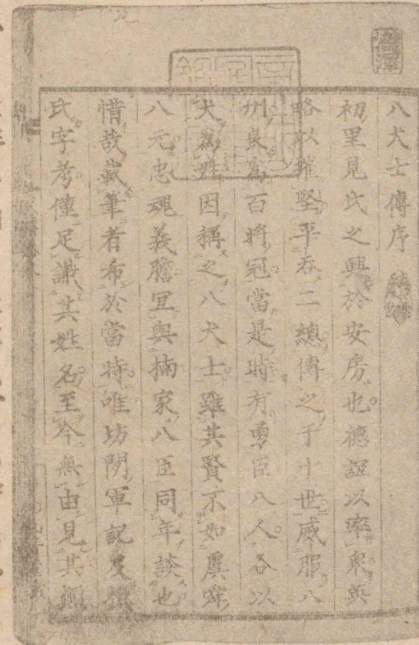 八犬士傳序
初里見氏之興於安房也德誼以率衆英
略以摧堅平呑二總傳之于十世威服八
州良爲百將冠當是時有勇臣八人各以
犬爲姓因稱之八犬士雖其賢不如虞舜
八元忠魂義膽宜與楠家八臣同年談也
惜哉載筆者希於當時唯坊間軍記及槇
氏字考僅足識其姓名至今無由見其顚